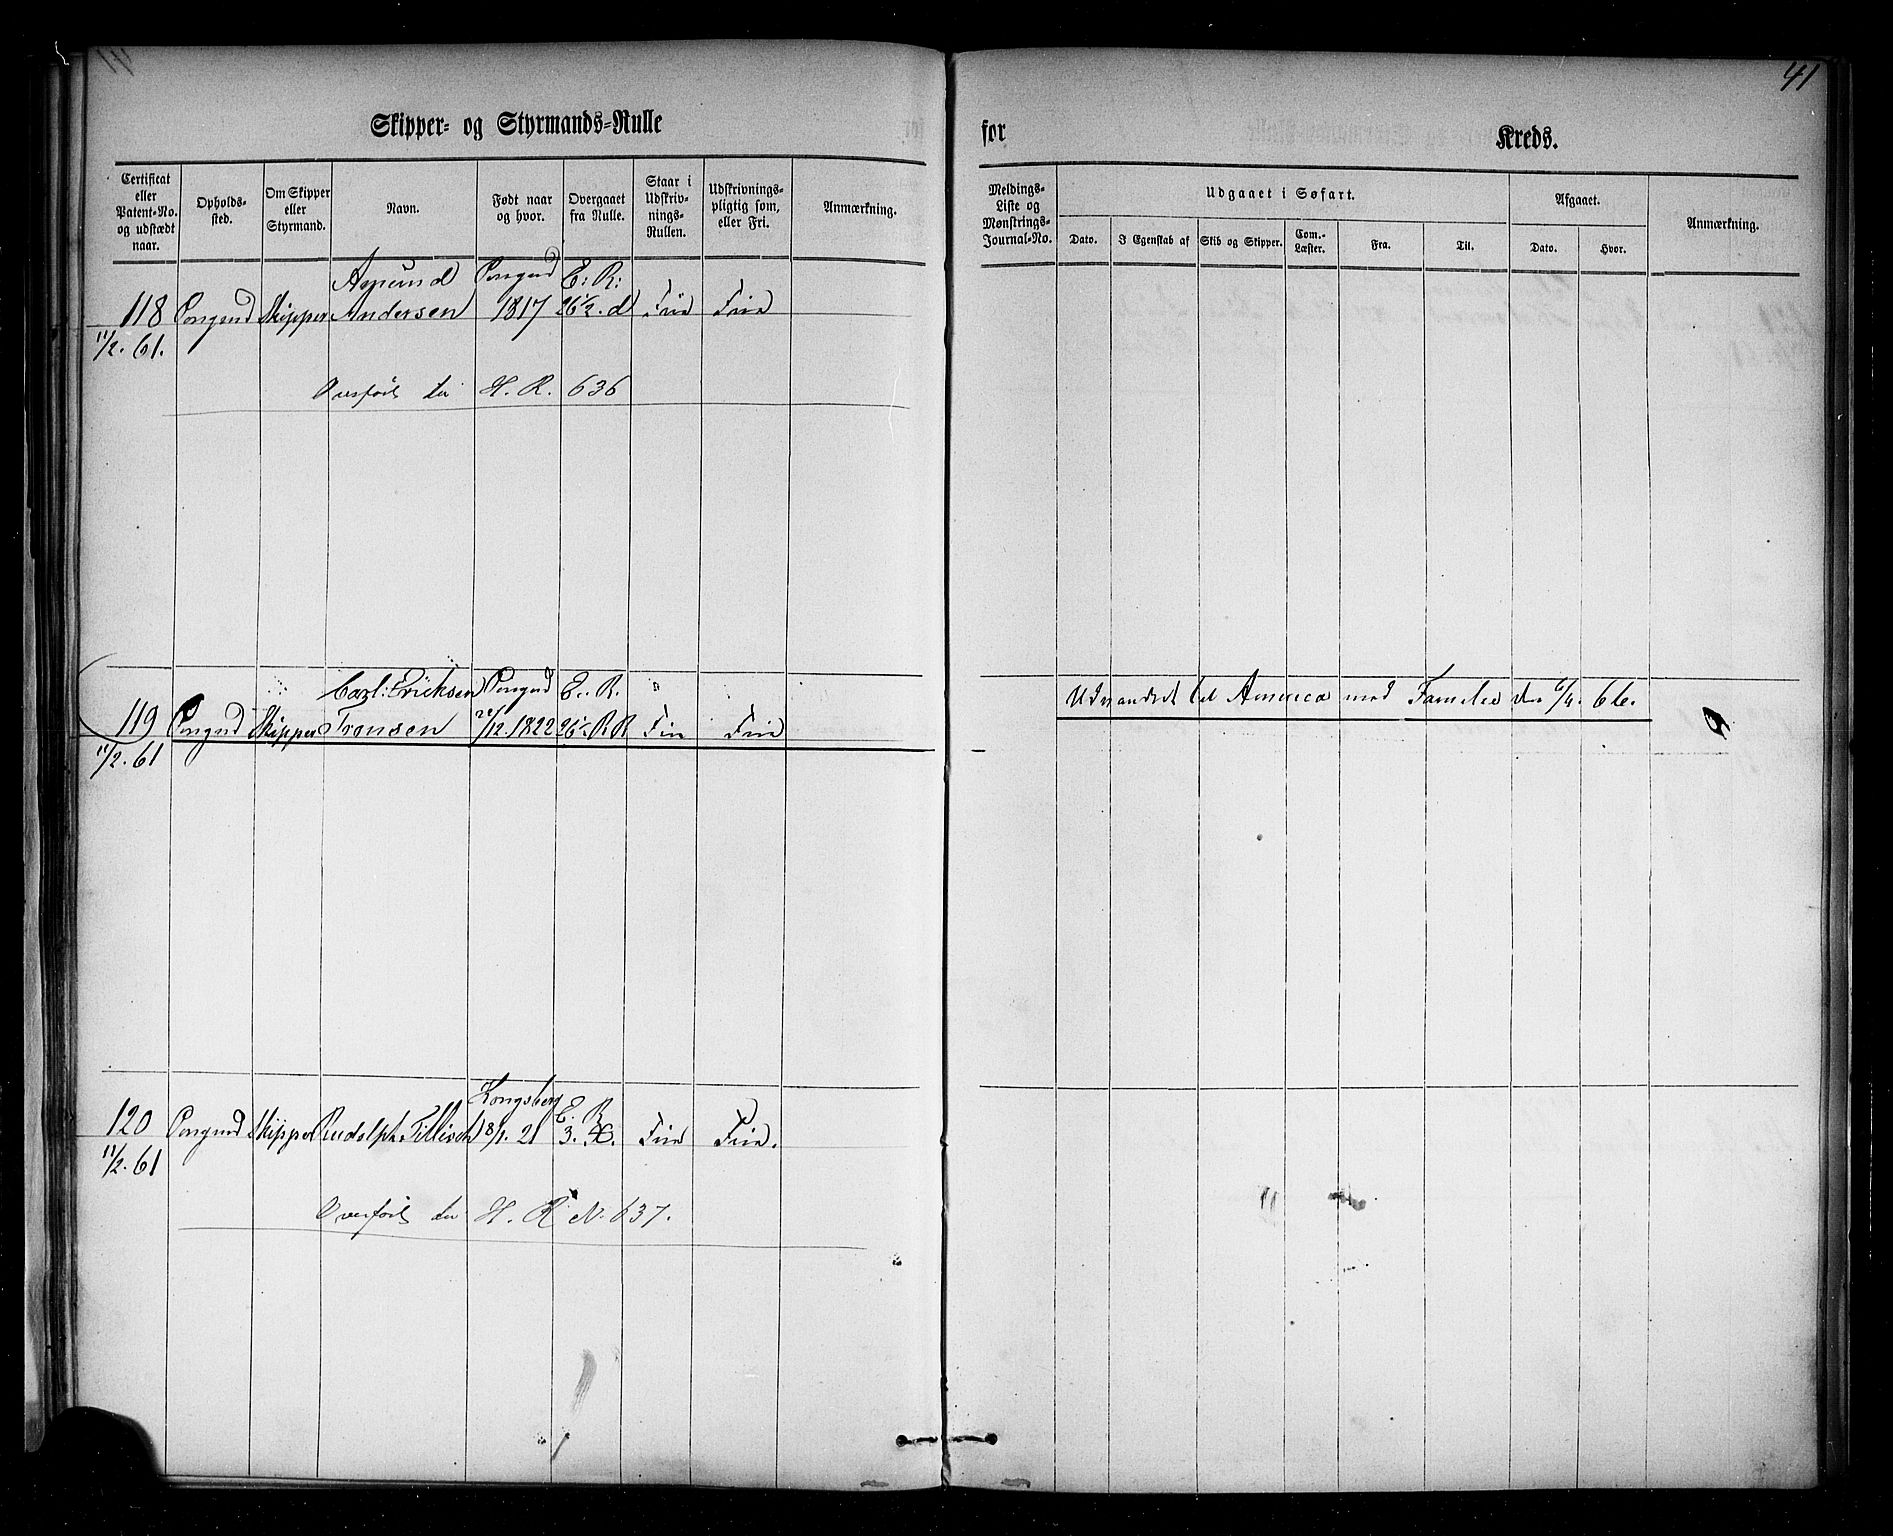 41
Skipper- og Styrmands-Rulle for Kreds.
Certificat eller Patent-No. og udstædt naar.
Opholds-sted.
Om Skipper eller Styrmand.
Navn.
Født naar og hvor.
Overgaaet fra Rulle.
Staar i Udskriv-nings-Rullen.
Udskrivnings-pligtig som, eller Fri.
Anmærkning.
Meldings-Liste og Mønstrings-Journal-No.
Udgaaet i Søfart.
Dato.
I Egenskab af
Skib og Skipper.
Com.-Læster.
Fra.
Til.
Afgaaet.
Dato.
Hvor.
Anmærkning.
Asmund Porsgrd E: R:
118 Porsgrd Skipper Andersen 1817 26 1/2. d Frie Frie
11/2. 61.
Overført til H. R. 636
Carl: Ericksen Porsgrd E. R.
119 Porsgrd Skipper Fronsen /12. 1822 Frie Frie
11/2. 61
Udvandret til America med Familie den 6/4. 66.
Kongsberg E. R.
120 Porsgrd Skipper Rudolph Tillisch 18/1. 21 3. Frie Frie.
11/2. 61
Overført til H. R No. 637.